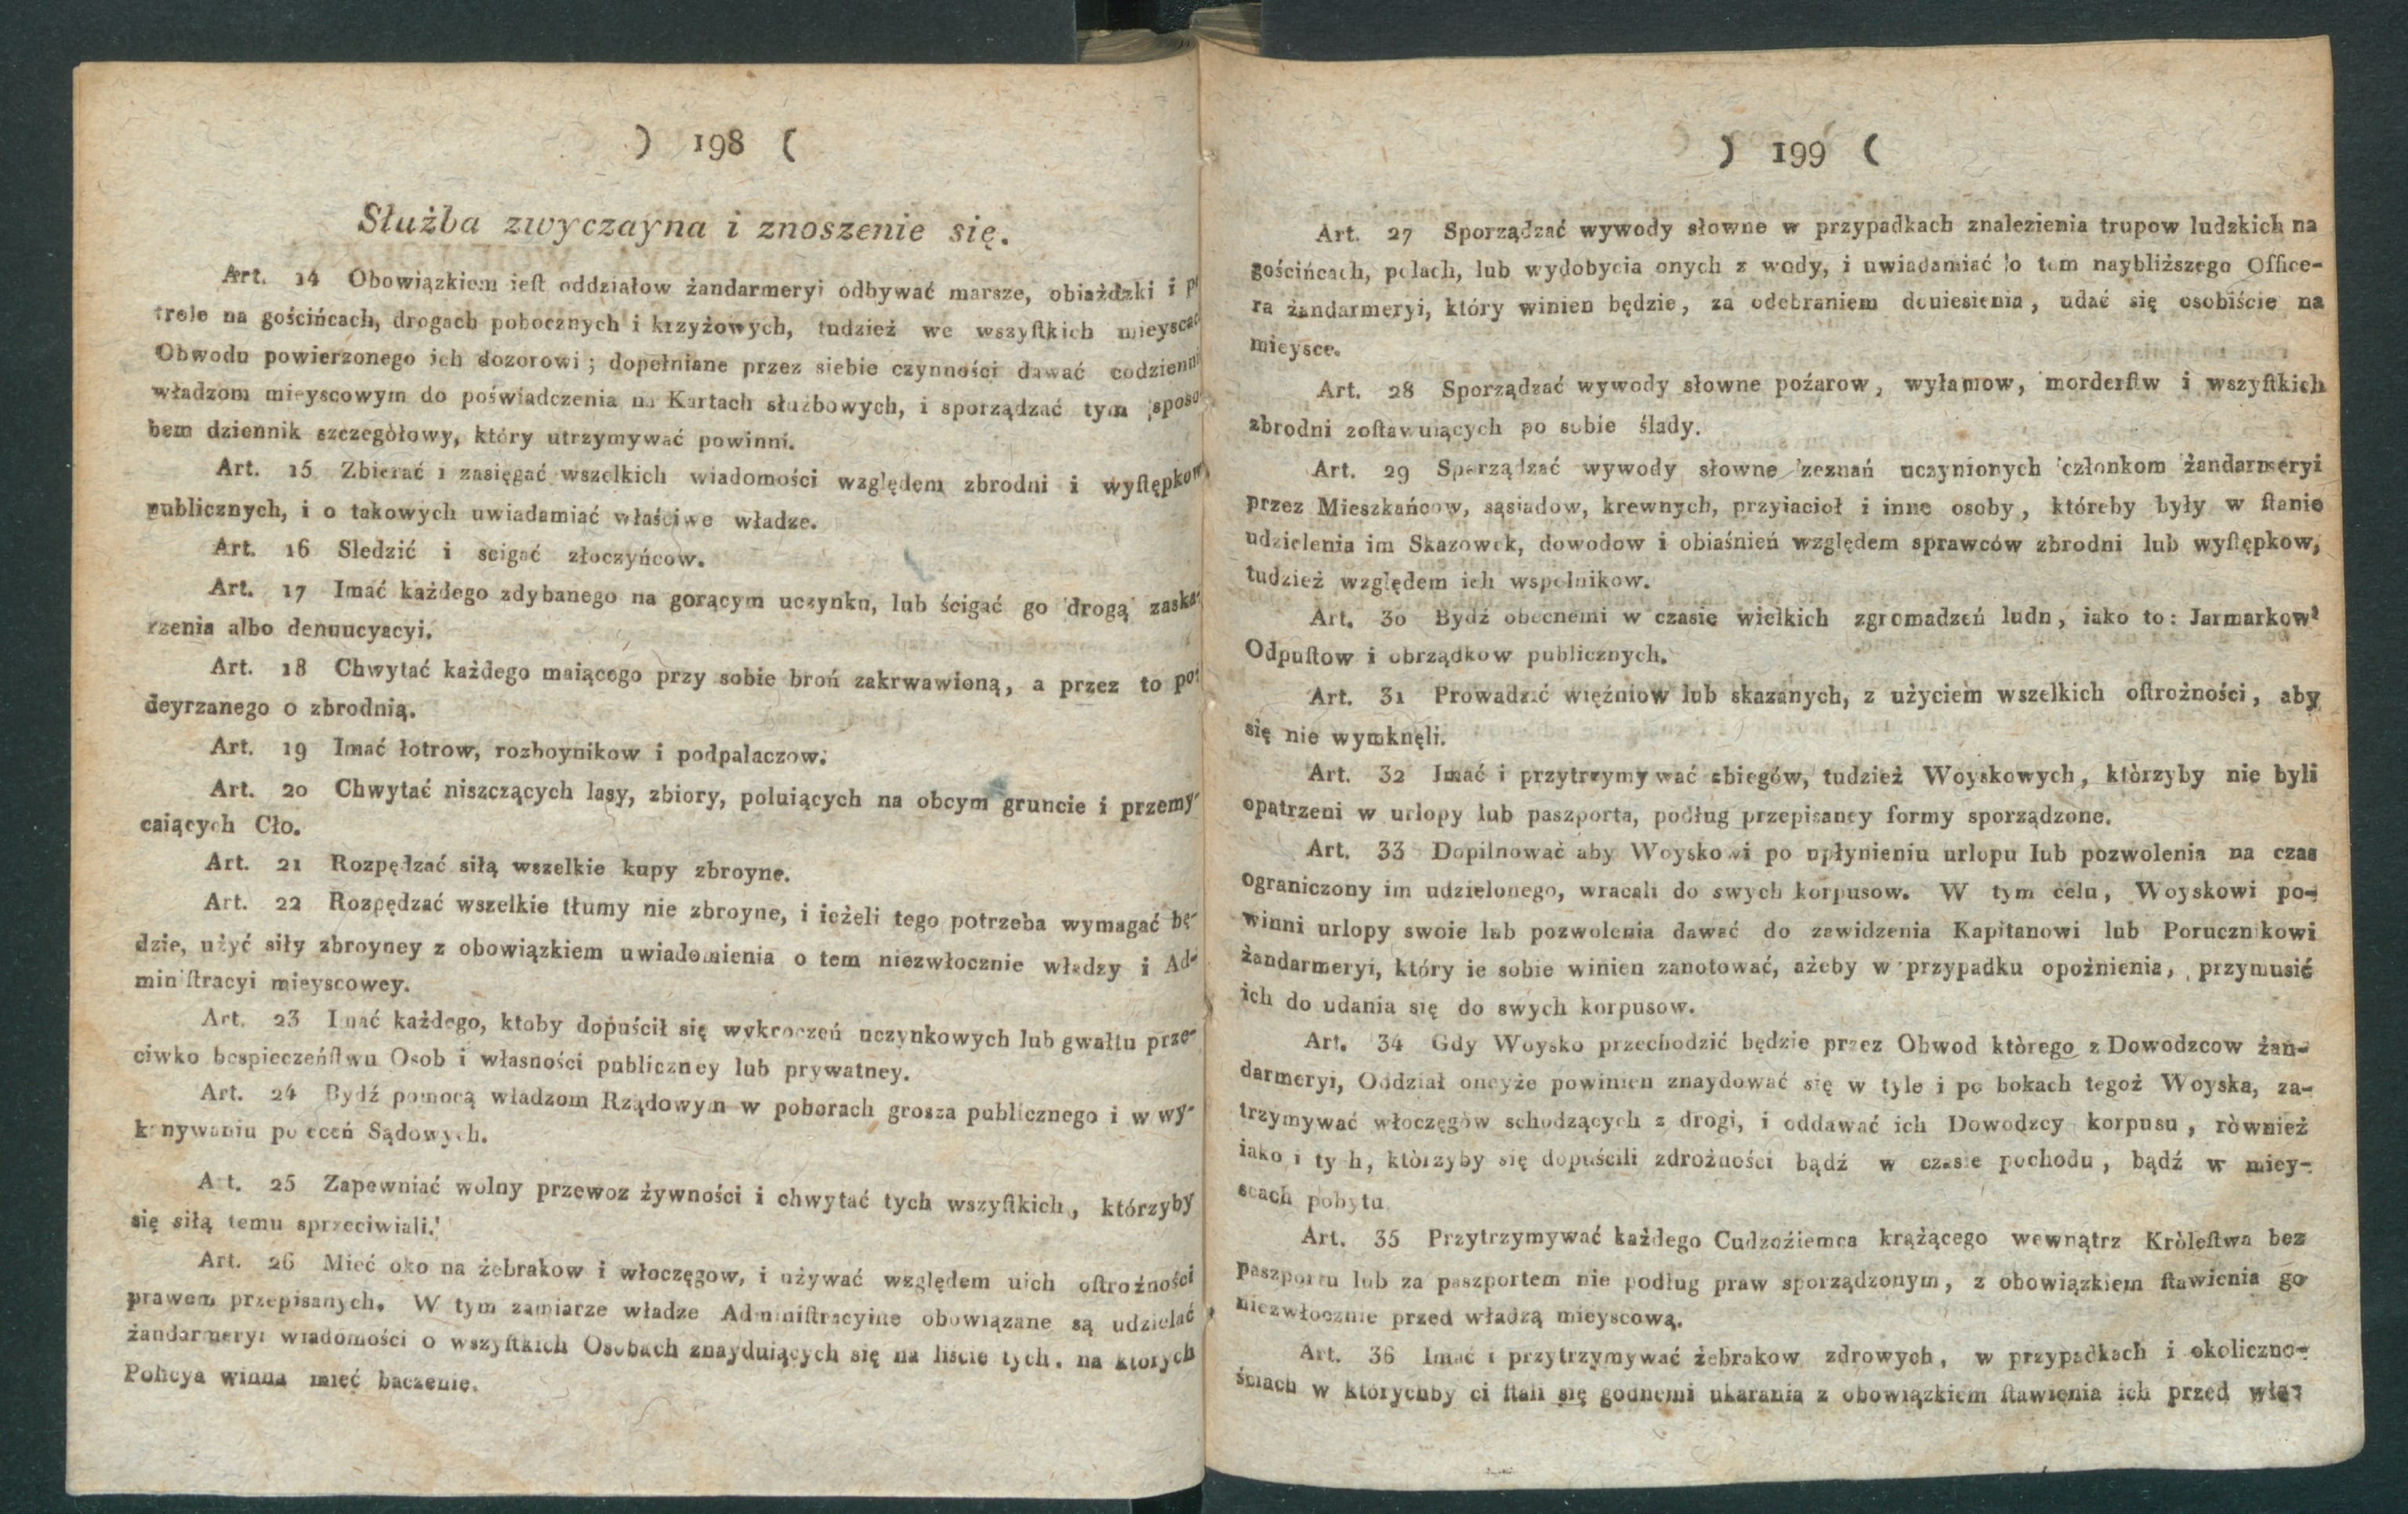 ) 198 (
Służba zwyczayna i znoszenie się.
Art. 14 Obowiązkiem ieſt oddziałow żandarmeryi odbywać marsze, obiażdzki i
trole na gościńcach, drogach pobocznych i krzyżowych, tudzież we wszyſtkich mieyscac
Obwodu powierzonego ich dozorowi; dopełniane przez siebie czynności dawać codzienni
władzom mieyscowym do poświadczenia na Kartach służbowych, i sporządzać tym sposo
bem dziennik szczegółowy, który utrzymywać powinni.
Art. 15 Zbierać i zasięgać wszelkich wiadomości względem zbrodni i wyſtępkow
publicznych, i o takowych uwiadamiać właściwe władze.
Art. 16 Sledzić i scigać złoczyńcow.
Art. 17 Imać każdego zdybanego na gorącym uczynku, lub ścigać go drogą zaska-
rzenia albo denuncyacyi.
Art. 18 Chwytać każdego maiącego przy sobie broń zakrwawioną, a przez to po-
deyrzanego o zbrodnią.
Art. 19 Imać łotrow, rozboynikow i podpalaczow.
Art. 20 Chwytać niszczących lasy, zbiory, poluiących na obcym gruncie i przemy-
caiących Cło.
Art. 21 Rozpędzać siłą wszelkie kupy zbroyne.
Art. 22 Rozpędzać wszelkie tłumy nie zbroyne, i ieżeli tego potrzeba wymagać bę-
dzie, użyć siły zbroyney z obowiązkiem uwiadomienia o tem niezwłocznie władzy i Ad-
miniſtracyi mieyscowey.
Art. 23 Imać każdego, ktoby dopuścił się wykroczeń uczynkowych lub gwałtu prze-
ciwko bespieczeńſtwu Osob i własności publiczney lub prywatney.
Art. 24 Bydź pomocą władzom Rządowym w poborach grosza publicznego i w wy-
konywaniu poleceń Sądowych.
Art. 25 Zapewniać wolny przewoz żywności i chwytać tych wszyſtkich, którzyby
się siłą temu sprzeciwiali.
Art. 26 Mieć oko na żebrakow i włoczęgow, i używać względem nich oſtrożności
prawem przepisanych. W tym zamiarze władze Adminiſtracyine obowiązane są udzielać
żandarmeryi wiadomości o wszyſtkich Osobach znayduiących się na liście tych, na ktorych
Policya winna mieć baczenie.
) 199 (
Art. 27 Sporządzać wywody słowne w przypadkach znalezienia trupow ludzkich na
gościńcach, polach, lub wydobycia onych z wody, i uwiadamiać o tem naybliższego Office-
ra żandarmeryi, który winien będzie, za odebraniem doniesienia, udać się osobiście na
mieysce.
Art. 28 Sporządzać wywody słowne pożarow, wyłamow, morderſtw i wszyſtkich
zbrodni zoſtawuiących po sobie ślady.
Art. 29 Sporządzać wywody słowne zeznań uczynionych członkom żandarmeryi
przez Mieszkańcow, sąsiadow, krewnych, przyiacioł i inne osoby, któreby były w ſtanie
udzielenia im Skazowek, dowodow i obiaśnień względem sprawców zbrodni lub wyſtępkow,
tudzież względem ich wspolnikow.
Art. 30 Bydź obecnemi w czasie wielkich zgromadzeń ludn, iako to: Jarmarkow,
Odpuſtow i obrządkow publicznych.
Art. 31 Prowadzić więźniow lub skazanych, z użyciem wszelkich oſtrożności, aby
się nie wymknęli.
Art. 32 Imać i przytrzymywać zbiegów, tudzież Woyskowych, którzyby nie byli
opatrzeni w urlopy lub paszporta, podług przepisaney formy sporządzone.
Art. 33 Dopilnować aby Woyskowi po upłynieniu urlopu lub pozwolenia na czas
ograniczony im udzielonego, wracali do swych korpusow. W tym celu, Woyskowi po-
winni urlopy swoie lub pozwolenia dawać do zawidzenia Kapitanowi lub Porucznikowi
żandarmeryi, który ie sobie winien zanotować, ażeby w przypadku opoźnienia, przymusić
ich do udania się do swych korpusow.
Art. 34 Gdy Woysko przechodzić będzie przez Obwod którego z Dowodzcow żan-
darmeryi, Oddział oneyże powinien znaydować się w tyle i po bokach tegoż Woyska, za-
trzymywać włoczęgów schodzących z drogi, i oddawać ich Dowodzcy korpusu, również
iako i tych, którzyby się dopuścili zdrożności bądź w czasie pochodu, bądź w miey-
scach pobytu
Art. 35 Przytrzymywać każdego Cudzoźiemca krążącego wewnątrz Króleſtwa bez
paszportu lub za paszportem nie podług praw sporządzonym, z obowiązkiem ſtawienia go
niezwłocznie przed władzą mieyscową.
Art. 36 Imać i przytrzymywać żebrakow zdrowych, w przypadkach i okoliczno-
ściach w którychby ci ſtali się godnemi ukarania z obowiązkiem ſtawienia ich przed wła-